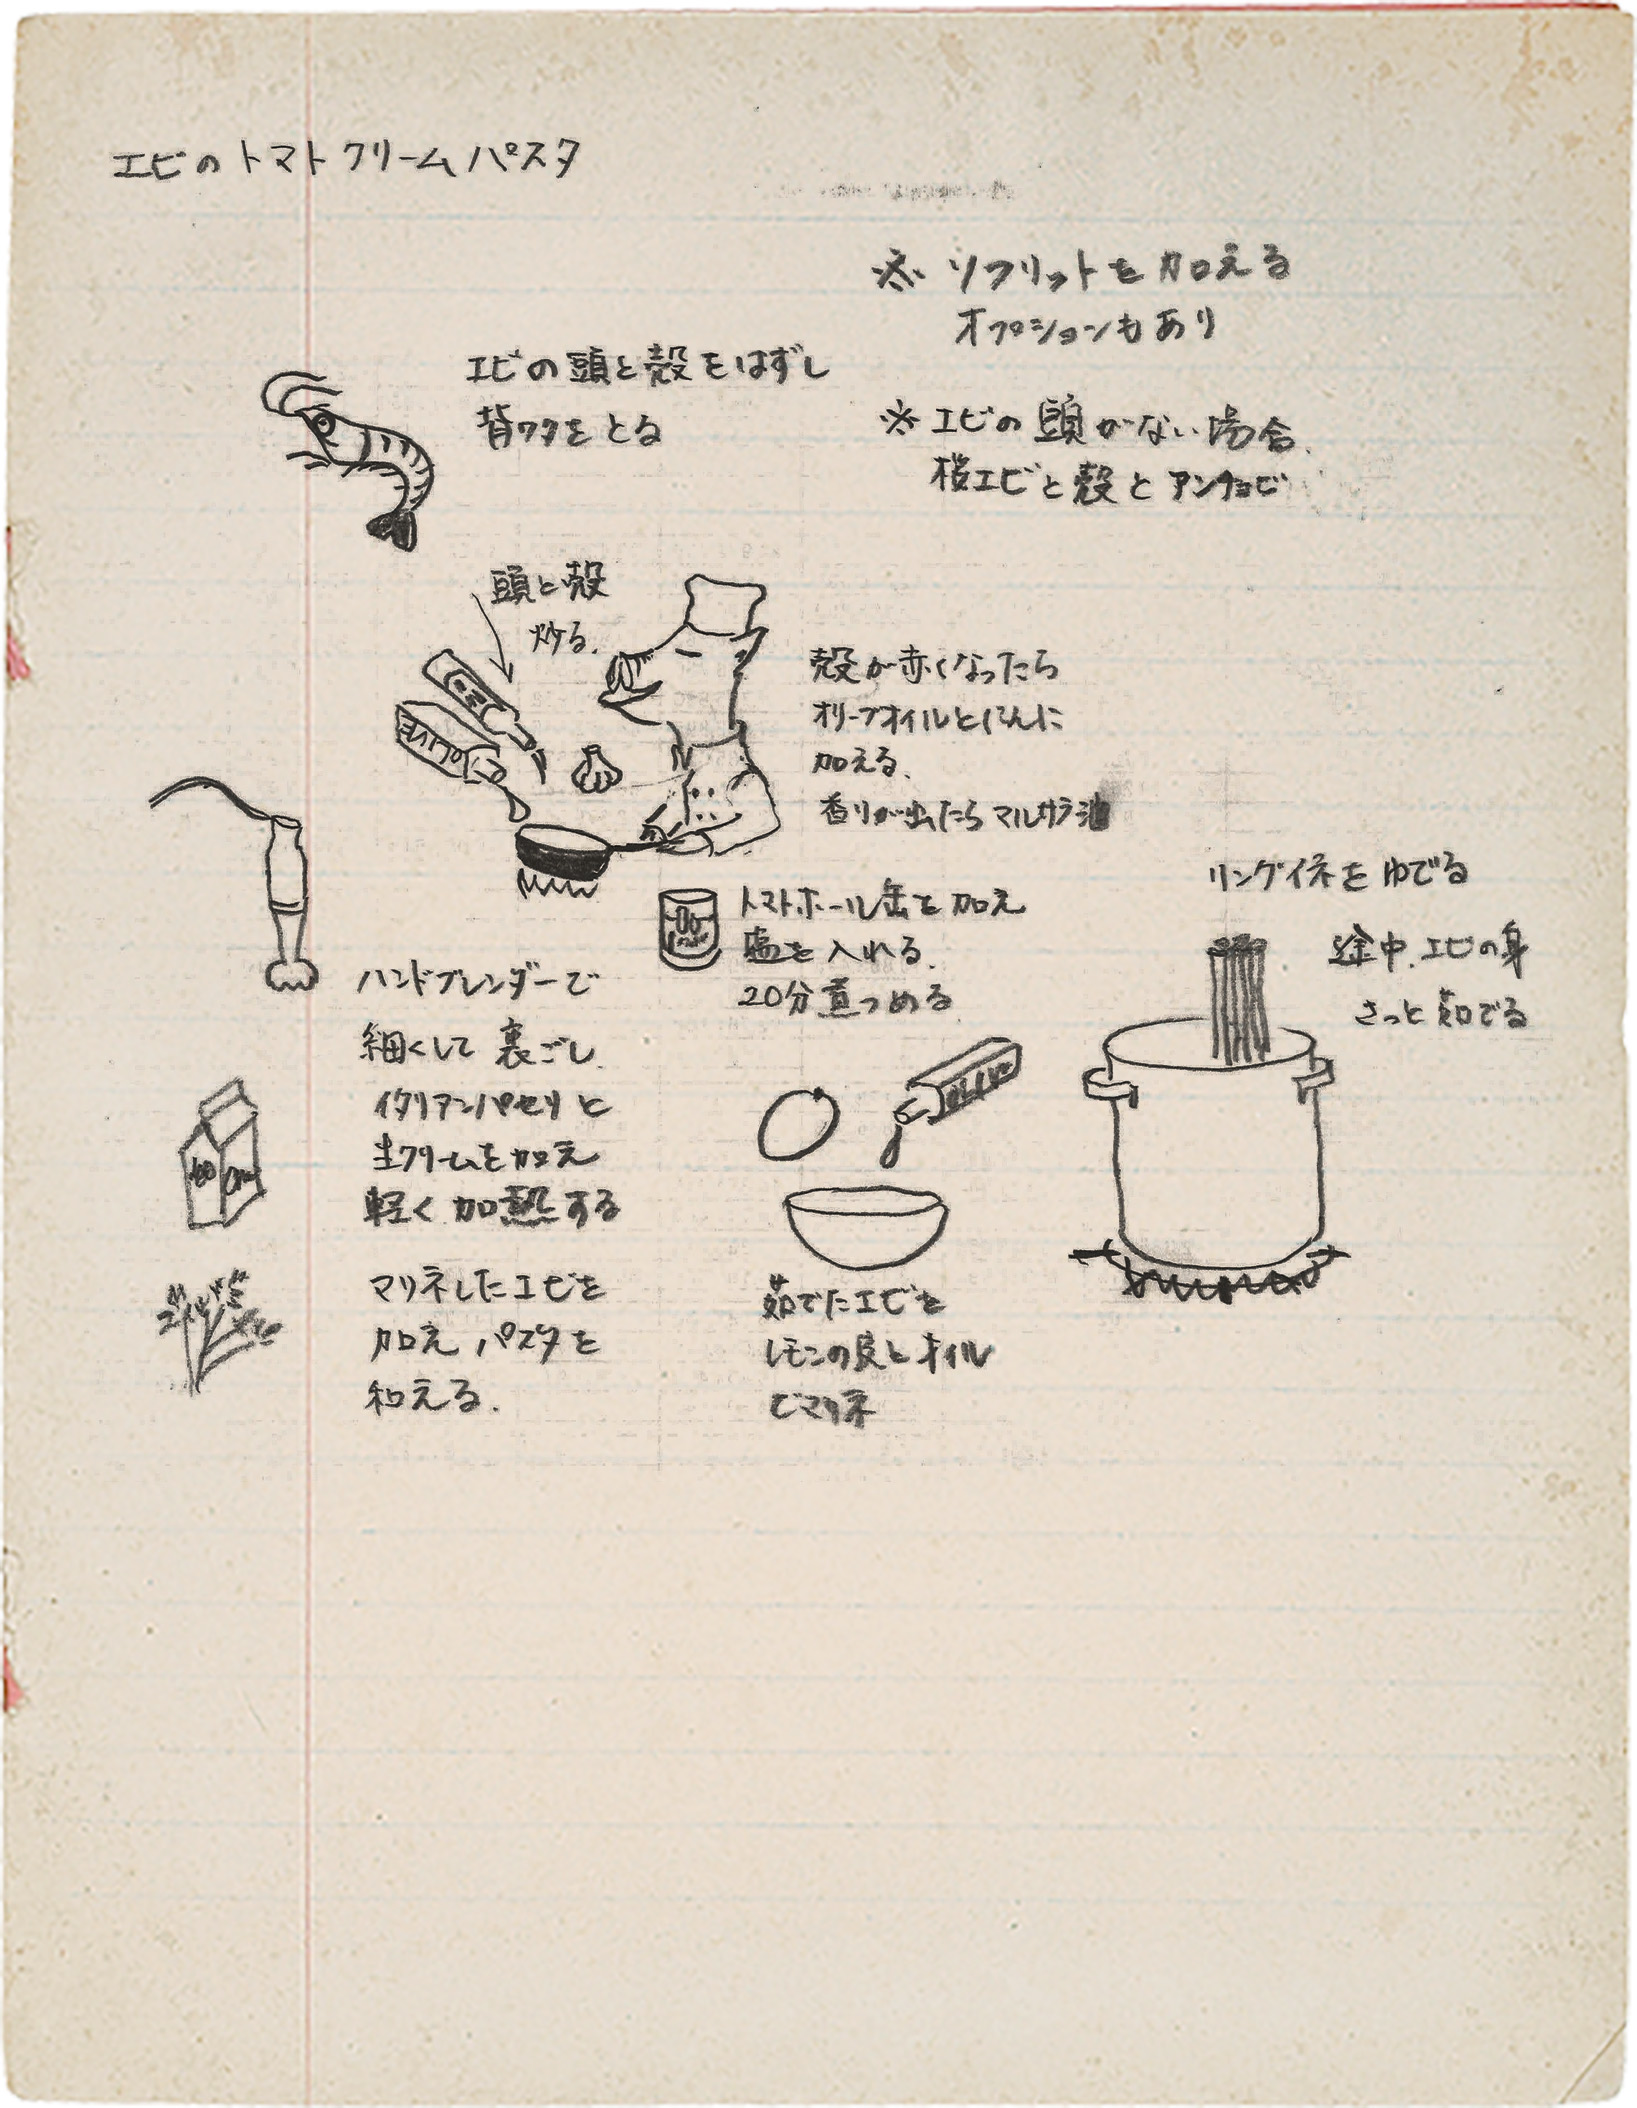 エビのトマトクリームパスタ
※ ソフリットを加える
オプションもあり
※ エビの頭がない場合、
桜エビと殻とアンチョビ
エビの頭と殻をはずし
背ワタをとる
頭と殻
炒る。
OLIVE
殻が赤くなったら
オリーブオイルとにんに
加える、
香りが出たらマルサラ酒
トマトホール缶を加え
塩を入れる、
20分煮つめる
リングイネをゆでる
途中、エビの身
さっと茹でる
OLIVE
茹でたエビを
レモンの皮とオイル
でマリネ
ハンドブレンダーで
細くして裏ごし、
イタリアンパセリと
生クリームを加え
軽く加熱する
マリネしたエビを
加え パスタを
和える、